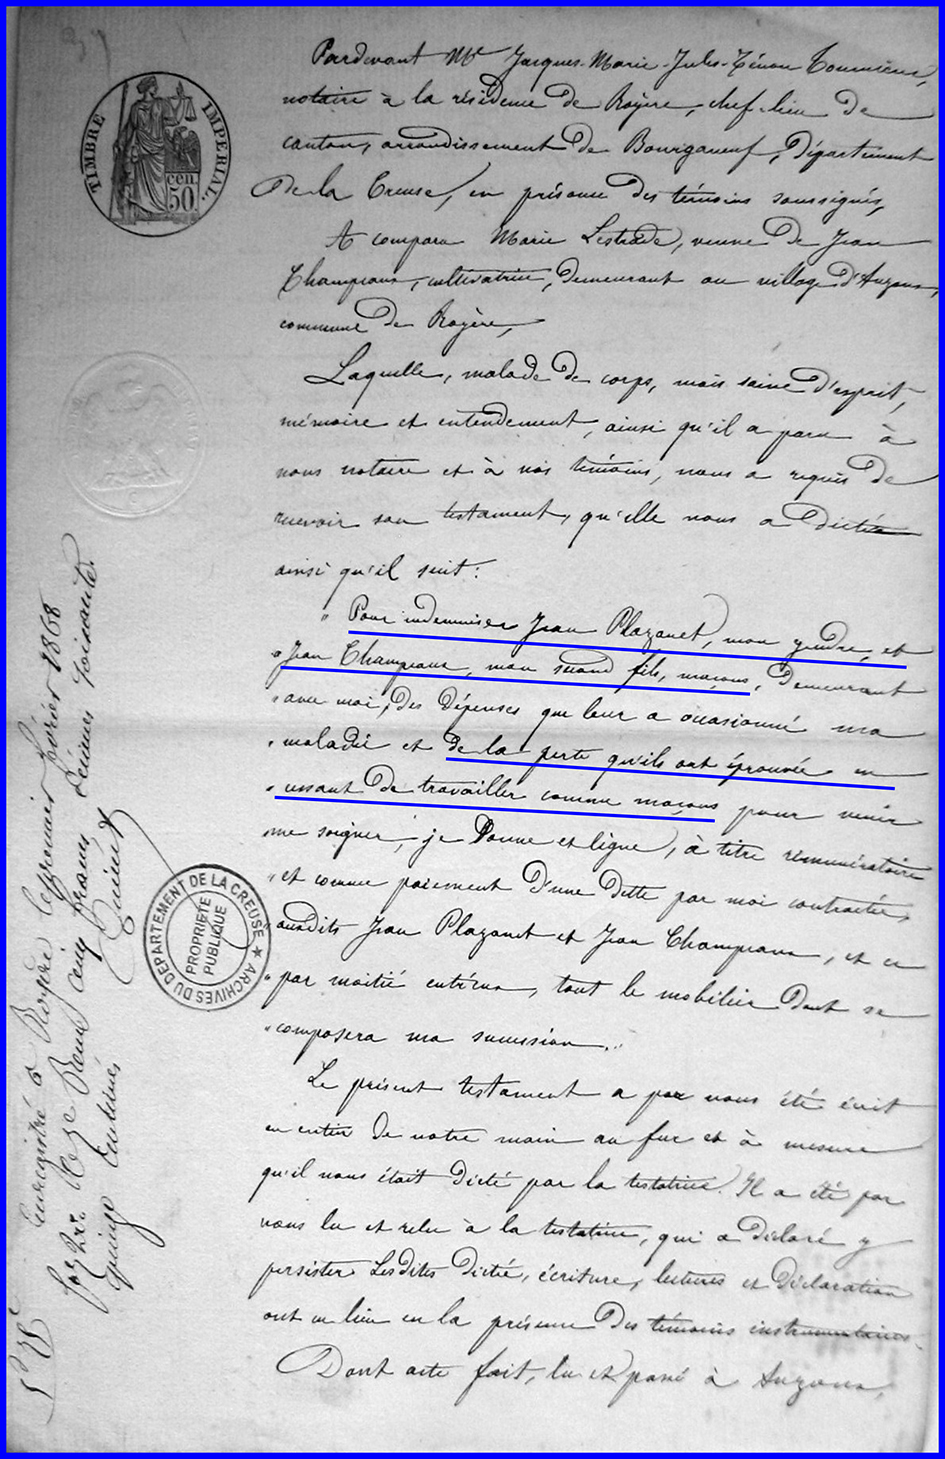 TIMBRE IMPERIAL.
50 cen
Pardevant Me Jacques-Marie-Jules-Zénon
notaire à la résidence de Royère, chef lieu de
canton, arrondissement de Bourganeuf, Département
de la Creuse, en présence des témoins soussignés,
A comparu Marie Lestrade, veuve de Jean
Champeaux, cultivatrice, demeurant au village d'Auzoux,
commune de Royère,
Laquelle, malade de corps, mais saine d'esprit,
mémoire et entendement, ainsi qu'il a paru à
nous notaire et à nos témoins, nous a requis de
recevoir son testament, qu'elle nous a dicté
ainsi qu'il suit :
" Pour indemniser Jean Plazanet, mon gendre, et
" Jean Champeaux, mon second fils, maçons, demeurant
" avec moi, des dépenses que leur a occasionné ma
" maladie et de la perte qu'ils ont éprouvée en
" cessant de travailler comme maçons pour venir
" me soigner, je donne et lègue, à titre rémunératoire
" et comme paiement d'une dette par moi contractée,
" auxdits Jean Plazanet et Jean Champeaux, et ce
" par moitié entr'eux, tout le mobilier dont se
" composera ma succession. "
Le présent testament a par nous été écrit
en entier de notre main au fur et à mesure
qu'il nous était dicté par la testatrice. Il a été par
nous lu et relu à la testatrice, qui a déclaré y
persister. Lesdits dictée, écriture, lectures et déclaration
ont eu lieu en la présence des témoins instrumentaires.
Dont acte fait, lu et passé à Auzoux,
Enregistré à Royère le premier février 1868
Reçu cinq francs décimes soixante
quinze centimes
DEPARTEMENT DE LA CREUSE ★ ARCHIVES DU
PROPRIETE
PUBLIQUE